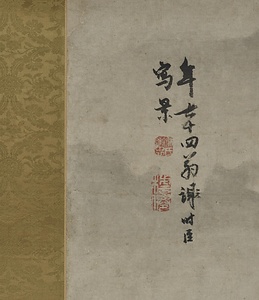 年七十四翁謝時臣
寫景